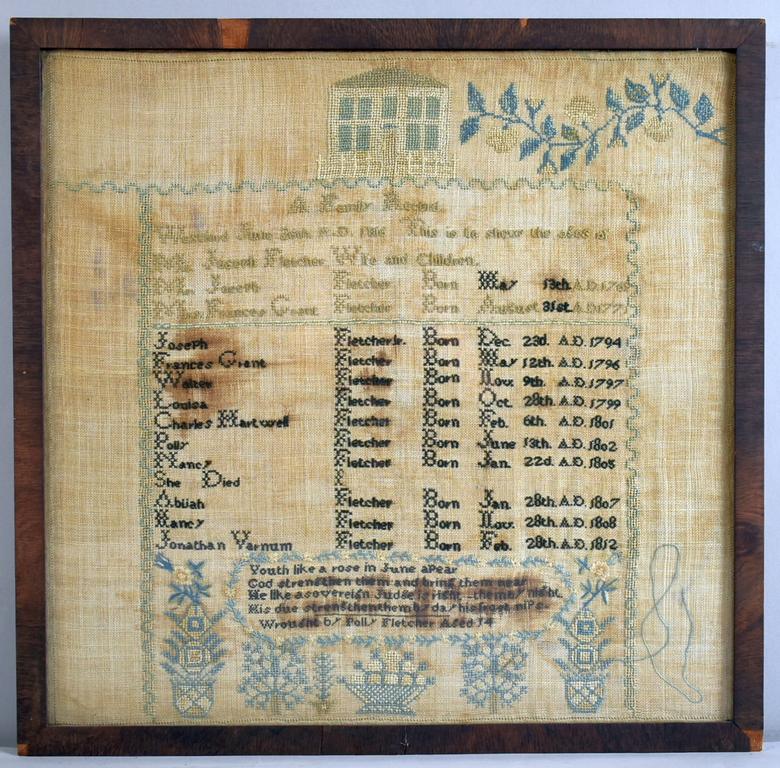 A Family Record.
Westford June 20th A.D. 1816 This is to show the ages of
Mr. Joseph Fletcher Wife and Children.
Mr. Joseph Fletcher Born May 13th A.D.
Mrs. Frances Grant Fletcher Born August 31st A.D.
Joseph Fletcher Jr. Born Dec. 23d. A.D. 1794
Frances Grant Fletcher Born May 12th A.D. 1796
Walter Fletcher Born Nov. 9th A.D. 1797
Louisa Fletcher Born Oct. 28th A.D. 1799
Charles Hartwell Fletcher Born Feb. 6th A.D. 1801
Polly Fletcher Born June 13th A.D. 1802
Nancy Fletcher Born Jan. 22d. A.D. 1805
She Died
Abijah Fletcher Born Jan. 28th A.D. 1807
Nancy Fletcher Born Nov. 28th A.D. 1808
Jonathan Varnum Fletcher Born Feb. 28th A.D. 1812
Youth like a rose in June apear
God strengthen them and bring them near
He like a sovereign Judge is right them by night
His due strengthen them by day his frost nips
Wrought by Polly Fletcher Aged 14